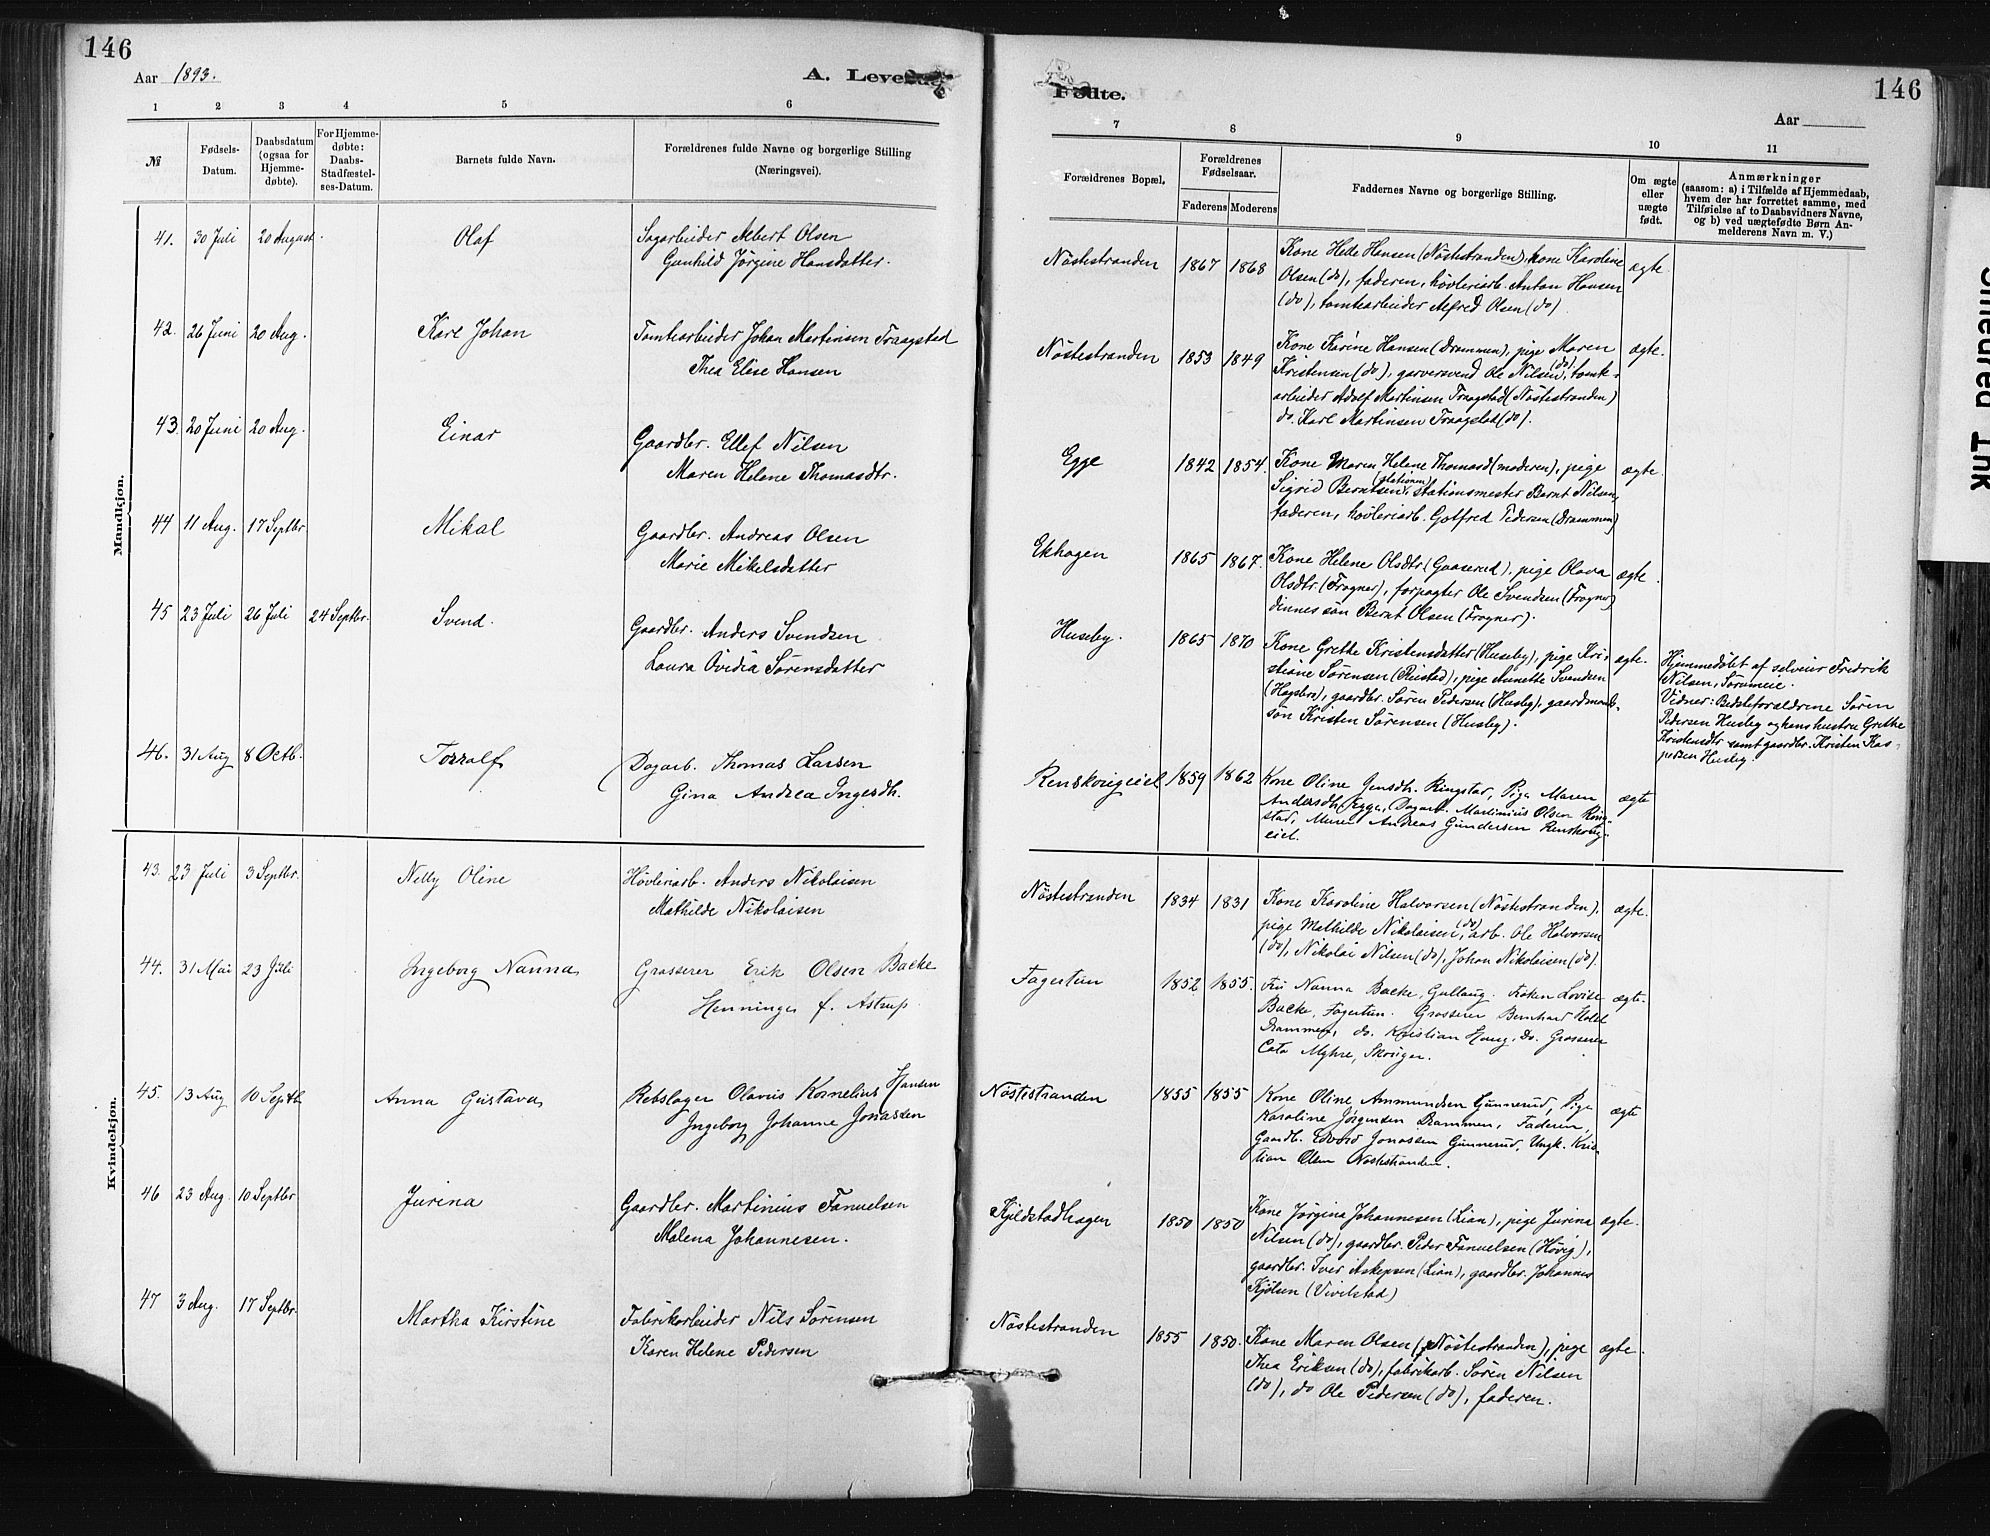 146
Aar 1893.
A. Levende
1 2 3 4 5 6
№
Fødsels-
Datum.
Daabsdatum
(ogsaa for
Hjemme-
døbte).
For Hjemme-
døbte:
Daabs-
Stadfæstel-
ses-Datum.
Barnets fulde Navn.
Forældrenes fulde Navne og borgerlige Stilling
(Næringsvei).
Mandkjøn.
41. 30 Juli 20 August. Olaf Sagarbeider Albert Olsen
Gunhild Jørgine Hansdatter.
42. 26 Juni 20 Aug. Karl Johan Tomtearbeider Johan Martinsen Traagstad
Thea Elise Hansen
43. 20 Juni 20 Aug. Einar Gaardbr. Ellef Nilsen
Maren Helene Thomasdtr.
44 11 Aug. 17 Septbr Mikal Gaardbr. Andreas Olsen
Marie Mikelsdatter
45 23 Juli 26 Juli 24 Septbr. Svend. Gaardbr. Anders Svendsen
Laura Ovidia Sørensdatter
46. 31 Aug 8 Octb. Torralf Dagarb. Thomas Larsen
Gina Andrea Ingerdh.
Kvindekjøn.
43. 23 Juli 3 Septbr. Nelly Oline Høvleriarb. Anders Nikolaisen
Mathilde Nikolaisen
44. 31 Mai 23 Juli Ingeborg Nanna Grosserer Erik Olsen Backe
Henninge f. Astrup.
45. 13 Aug 10 Septb. Anna Gustava Rebslager Olavus Kornelius Hansen
Ingeborg Johanne Jonassen
46 23 Aug. 10 Septbr. Jurina Gaardbr. Martinius Fanuelsen
Malena Johannesen.
47 3 Aug. 17 Septbr. Martha Kirstine Fabrikarbeider Nils Sørensen
Karen Helene Pedersen
Fødte.
146
Aar
7 8 9 10 11
Forældrenes Bopæl.
Forældrenes
Fødselsaar.
Faderens Moderens
Faddernes Navne og borgerlige Stilling.
Om ægte
eller
uægte
født.
Anmærkninger
(saasom: a) i Tilfælde af Hjemmedaab,
hvem der har forrettet samme, med
Tilføielse af to Daabsvidners Navne,
og b) ved uægtefødte Børn An-
melderens Navn m. V.)
Nøstestranden 1867 1868 Kone Helle Hansen (Nøstestranden), kone Karoline ægte.
Olsen (do), faderen, høvleriarb. Anton Hansen
(do), tomtearbeider Alfred Olsen (do)
Nøstestranden 1853 1849 Kone Karine Hansen (Drammen), pige Maren ægte.
Kristensen (do), garversvend Ole Nilsen (do), tomte-
arbeider Adolf Martinsen Traagstad (Nøstestranden)
do. Karl Martinsen Traagstad (do).
Egge 1842 1854. Kone Maren Helene Thomasd (moderen), pige ægte.
Sigrid Berntsen (stationen), stationsmester Bernt Nilsen,
faderen, høvleriarb. Gotfred Pedersen (Drammen)
Ekhagen 1865 1867. Kone Helene Olsdtr (Gaaserud), pige Olava ægte.
Olsdtr (Frogner), forpagter Ole Svendsen (Frogner)
dennes søn Bernt Olsen (Frogner).
Huseby. 1865 1870 Kone Grethe Kristensdatter (Huseby), pige Kri- ægte.
stiane Sørensen (Reistad), pige Annette Svendsen
(Hagsbro), gaardbr. Søren Pedersen (Husby), gaardmands-
søn Kristen Sørensen (Husby).
Hjemmedøbt af selveier Fredrik
Nilsen, Sørumeie.
Vidner: Bedsteforældrene Søren
Pedersen Husby og hans hustru Grethe
Kristensdtr samt gaardbr. Kristen Kas-
persen Husby.
Renskougeiel 1859 1862 Kone Oline Jensdh. Ringstad, Pige Maren ægte
Andersdh. Egge, Dagarb. Martinius Olsen Ring-
stad, Murer Andreas Gundersen Renskoug-
eiel.
Nøstestranden 1834 1831 Kone Karoline Halvorsen (Nøstestranden), ægte.
pige Mathilde Nikolaisen (do), arb. Ole Halvorsen
(do), Nikolai Nilsen (do), Johan Nikolaisen (do).
Fagertun 1852 1855. Fru Nanna Backe, Gullaug. Frøken Lovise ægte.
Backe, Fagertun. Grosserer Bernhard Holst
Drammen, do. Kristian Haug, Do. Grosserer
Cato Myhre, Skouger.
Nøstestranden 1855 1855 Kone Oline Ammundsen Gunnerud, Pige ægte
Karoline Jørgensen Drammen, Faderen,
Gaardb. Edvard Jonassen Gunnerud, Ungk. Kris-
tian Olsen Nøstestranden.
Kjeldstadhagen 1850 1850 Kone Jørgina Johannesen (Lian), pige Jurina ægte.
Nilsen (do), gaardbr. Peder Fanuelsen (Høvig),
gaardbr. Iver Askepsen (Lian), gaardbr. Johannes
Kjølsen (Vivilstad)
Nøstestranden 1855 1850. Kone Maren Olsen (Nøstestranden), pige ægte.
Thea Eriksen (do), fabrikarb. Søren Nilsen
(do), do Ole Pedersen (do), faderen.
Smeared Ink